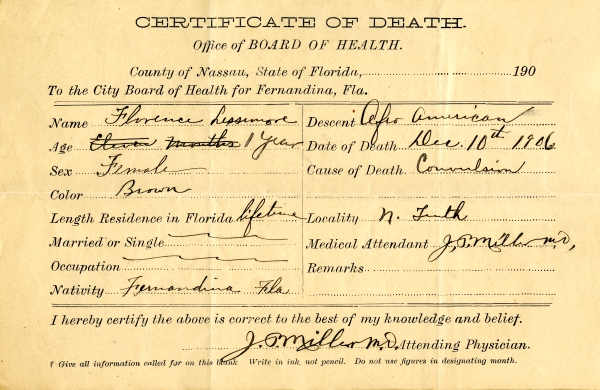 CERTIFICATE OF DEATH.
Office of BOARD OF HEALTH.
County of Nassau, State of Florida, 190
To the City Board of Health for Fernandina, Fla.
Name Florence Lessimore
Age Eleven Months 1 Year
Sex Female
Color Brown
Length Residence in Florida lifetime
Married or Single
Occupation
Nativity Fernandina Fla
Descent Afro American
Date of Death Dec. 10th 1906
Cause of Death Convulsion
Locality N.
Medical Attendant J. P. Miller M.D,
Remarks
I hereby certify the above is correct to the best of my knowledge and belief.
J. P. Miller M.D. Attending Physician.
† Give all information called for on this blank Write in ink, not pencil. Do not use figures in designating month.